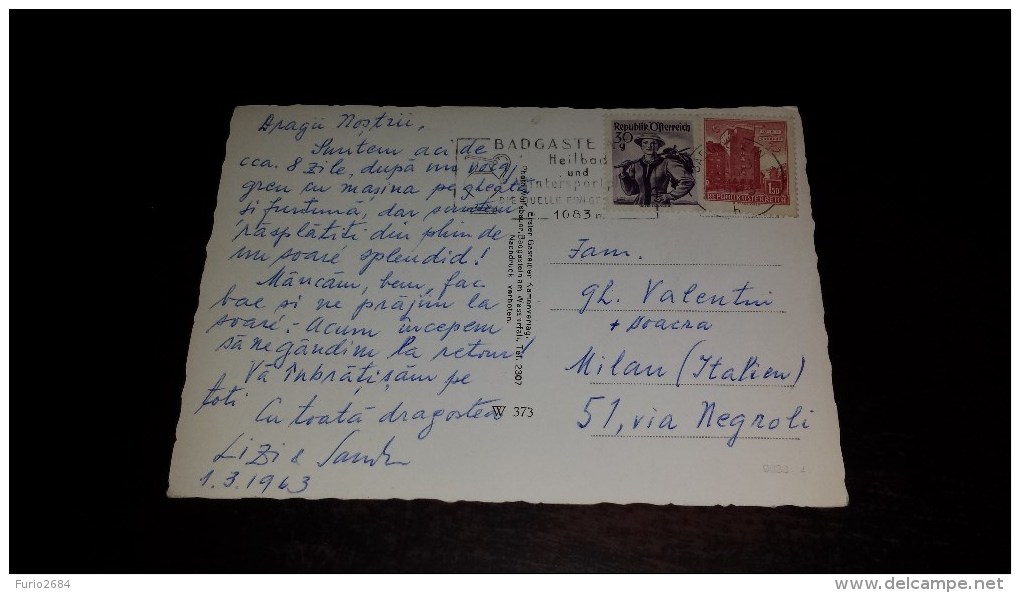 Dragii Noștrii,
Suntem aci de
cca. 8 zile, după un voiaj
greu cu mașina pe gheață
și furtună, dar suntem
răsplătiți din plin de
un soare splendid!
Mâncăm, bem, fac
bae și ne prăjim la
soare. - Acum începem
să ne gândim la retour!
Vă îmbrățișăm pe
toți
Cu toată dragostea
Lizi & Sandu
1.3.1963
BADGASTE
Heilbad
und
Wintersport
DIE QUELLE EWIGER
1083 m
Republik Österreich
30 g
1.50
REPUBLIK ÖSTERREICH
Erster Gasteiner Kartenverlag,
Badgastein am Wasserfall, Tel. 2307
Nachdruck verboten.
W 373
Fam.
Gh. Valentin
+ Soacra
Milan (Italien)
51, via Negroli
Furio2684
www.delcampe.net